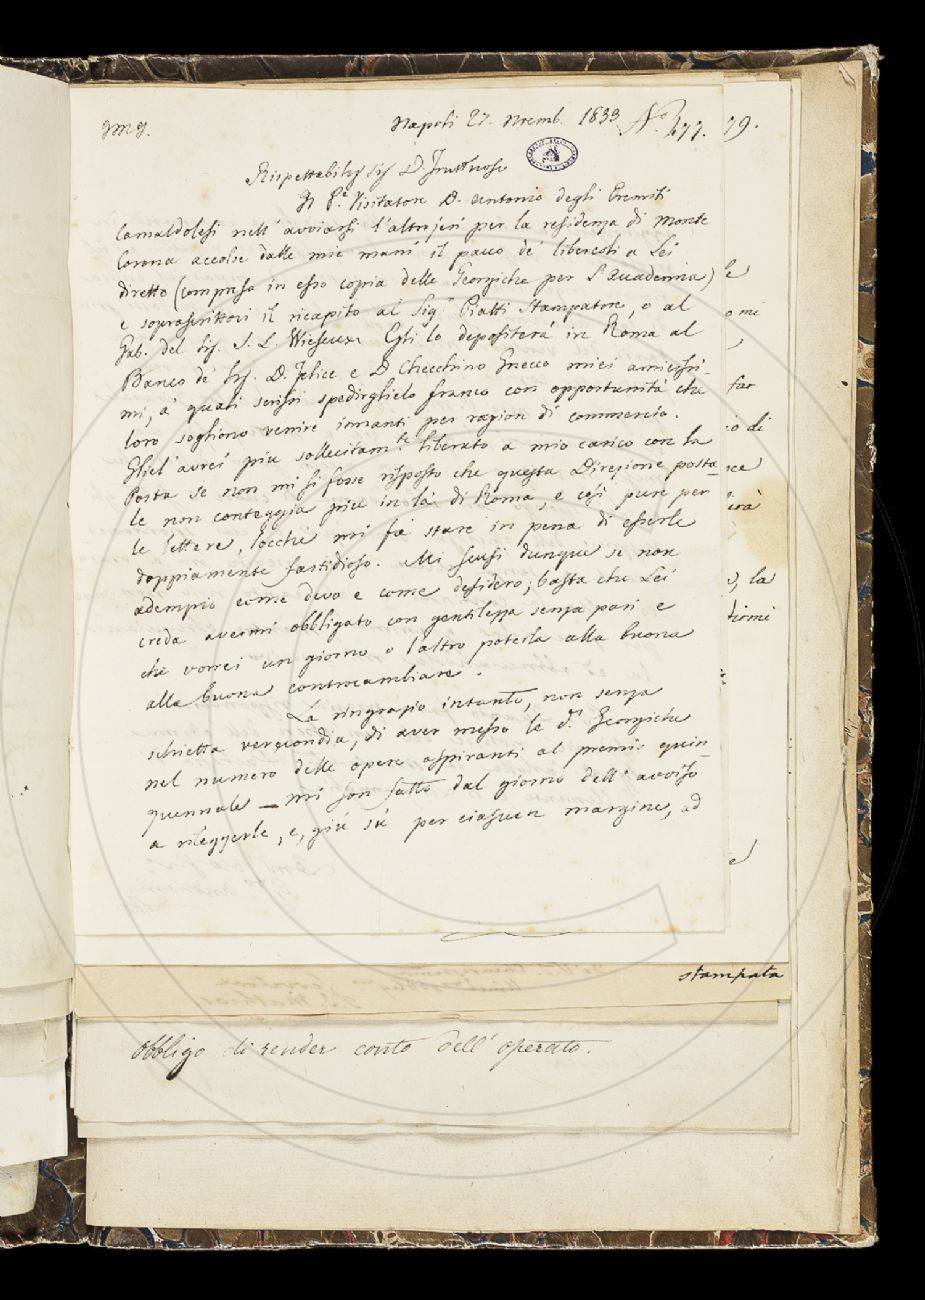 Napoli 27. Novemb. 1833 N.° 477. 79.
Rispettabilis Sig D. Fruttuoso
Il P.e Visitatore D. Antonio degli Eremiti
Camaldolesi nell' avviarsi l'altrojeri per la residenza di Monte
Corona accolse dalle mie mani il pacco de' libercoli a Lei
diretto (compresa in esso copia delle Georgiche per l'Accademia)
e soprascrittovi il ricapito al Sig.r Piatti Stampatore, o al
Gab. del Sig. Egli lo depositerà in Roma al
Banco de' Sig. D. Felice e D. Checchino miei amicissi-
mi, a' quali scrissi spedirglielo franco con opportunità che
loro sogliono venire innanti per ragion di commercio.
Gliel' avrei più sollecitam.te liberato a mio carico con la
Posta se non mi si fosse risposto che questa Direzione posta-
le non conteggia più in là di Roma, e così pure per
le lettere, locchè mi fa stare in pena di esserle
doppiamente fastidioso. Mi scusi dunque se non
adempio come devo e come desidero; basta che Lei
creda avermi obbligato con gentilezza senza pari e
che vorrei un giorno o l'altro poterla alla buona
alla buona contraccambiare.
La ringrazio intanto, non senza
schietta verecondia, di aver messo le d.e Georgiche
nel numero delle opere aspiranti al premio quin-
quennale — mi son fatto dal giorno dell' avviso
a rileggerle, e, giù sù per ciascun margine, ad
stampata
Obbligo di render conto dell' operato.